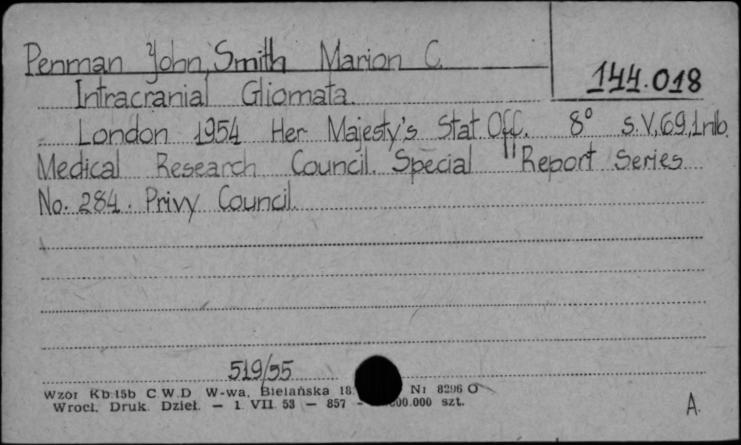 Penman John, Smith Marion C.
144.018
Intracranial Gliomata.
London 1954 Her Majesty's Stat. Off. 8° s. V, 69, 1nlb.
Medical Research Council. Special Report Series
No. 284. Privy Council.
519/55
Wzór Kb 15b C.W.D W-wa, Bielańska 18. Nr 8296 O
Wrocł. Druk. Dzieł. — 1 VII 53 — 857 — 00.000 szt.
A.